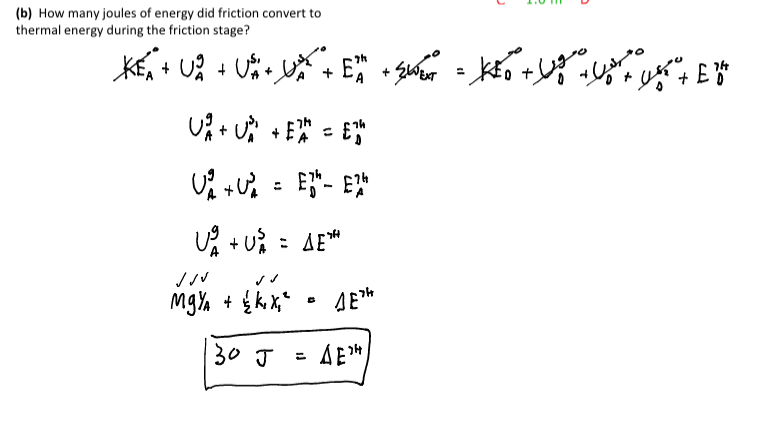 C 1.0 m D
(b) How many joules of energy did friction convert to
thermal energy during the friction stage?
KE_A + U^g_A + U^{s_1}_A + U^{s_2}_A + E^{TH}_A + ΣW_EXT = KE_D + U^g_D + U^{s_1}_D + U^{s_2}_D + E^{TH}_D
U^g_A + U^{s_1}_A + E^{TH}_A = E^{TH}_D
U^g_A + U^s_A = E^{TH}_D - E^{TH}_A
U^g_A + U^s_A = ΔE^{TH}
✓✓✓ ✓✓
Mgy_A + ½k_1x_1^2 = ΔE^{TH}
30 J = ΔE^{TH}